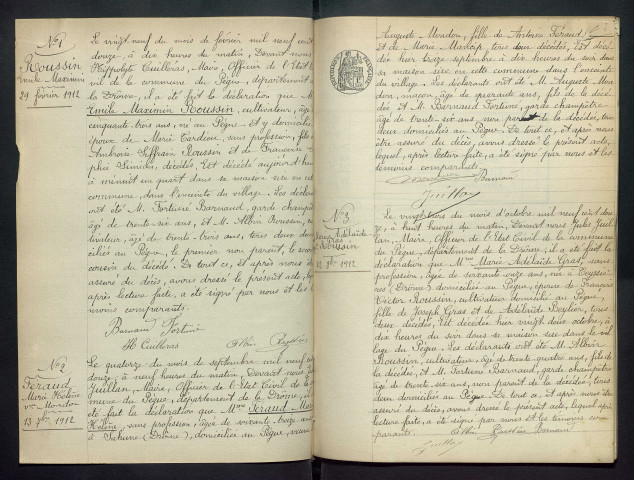 N° 1
Roussin
Emile Maximin
29 février 1912
Le vingt neuf du mois de février mil neuf cent
douze, à dix heures du matin, Devant nous
Hippolyte Cuilleras, Maire, Officier de l'Etat
vil de la commune du Pègue, département
la Drôme, il a été fait la déclaration que M.
Emile Maximin Roussin, cultivateur, âgé
cinquante trois ans, né au Pègue et y domicilié
époux de Marie Tardieu, sans profession, fils
Ambroise Siffrein Roussin et de Françoise
décédés, Est décédé aujourd'hui
à minuit un quart dans sa maison sise en cette
commune, dans l'enceinte du village. Les déclarants
ont été M. Fortuné Barnaud, garde champêtre
âgé de trente-six ans, et M. Albin Roussin, cul-
tivateur, âgé de trente-trois ans, tous deux domi-
ciliés au Pègue, le premier non parent, le second
cousin du décédé. De tout ce, et après nous être
assuré du décès, avons dressé le présent acte, lequel
après lecture faite, a été signé par nous et les té-
moins comparants.
Barnaud Fortuné
H Cuilleras Albin Roussin
N° 2
Féraud
Marie Hélène
Vve Mondon
13 7bre 1912
Le quatorze du mois de septembre mil neuf cent
douze, à neuf heures du matin, Devant nous Jules
Juillan, Maire, Officier de l'Etat Civil de la com-
mune du Pègue, département de la Drôme, il a
été fait la déclaration que Mme Féraud Marie
Hélène, sans profession, âgée de soixante treize ans
à Sahune (Drôme), domiciliée au Pègue, veuve
Auguste Mondon, fille de Antoine Féraud
et de Marie tous deux décédés, Est décé-
dée hier treize septembre à dix heures du soir dans
sa maison sise en cette commune dans l'enceinte
du village. Les déclarants ont été M. Auguste Mon-
don, maçon, âgé de quarante ans, fils de la décé-
dée et M. Barnaud Fortuné, garde champêtre
âgé de trente-six ans, non parent de la décédée, tous
deux domiciliés au Pègue. De tout ce, et après nous
être assuré du décès, avons dressé le présent acte,
lequel, après lecture faite, a été signé par nous et les
témoins comparants.
Mondon Barnaud
Juillan
N° 3
Gras Marie Adélaïde
Roussin
1912
Le vingt trois du mois d'octobre mil neuf cent dou-
ze, à huit heures du matin, Devant nous Jules Juil-
lan, Maire, Officier de l'Etat Civil de la commune
du Pègue, département de la Drôme, il a été fait la
déclaration que Mme Marie Adélaïde Gras, sans
profession, âgée de soixante onze ans, née à Teyssiè-
res (Drôme) domiciliée au Pègue, épouse de François
Victor Roussin, cultivateur domicilié au Pègue,
fille de Joseph Gras et de Adélaïde tous
deux décédés, Est décédée hier vingt deux octobre, à
dix heures du soir dans sa maison sise dans le vil-
lage du Pègue. Les déclarants ont été M. Albin
Roussin, cultivateur, âgé de trente quatre ans, fils de
la décédée, et M. Fortuné Barnaud, garde champêtre
âgé de trente-six ans, non parent de la décédée, tous
deux domiciliés au Pègue. De tout ce, et après nous être
assuré du décès, avons dressé le présent acte, lequel après
lecture faite, a été signé par nous et les témoins com-
parants. Albin Roussin Barnaud
Juillan